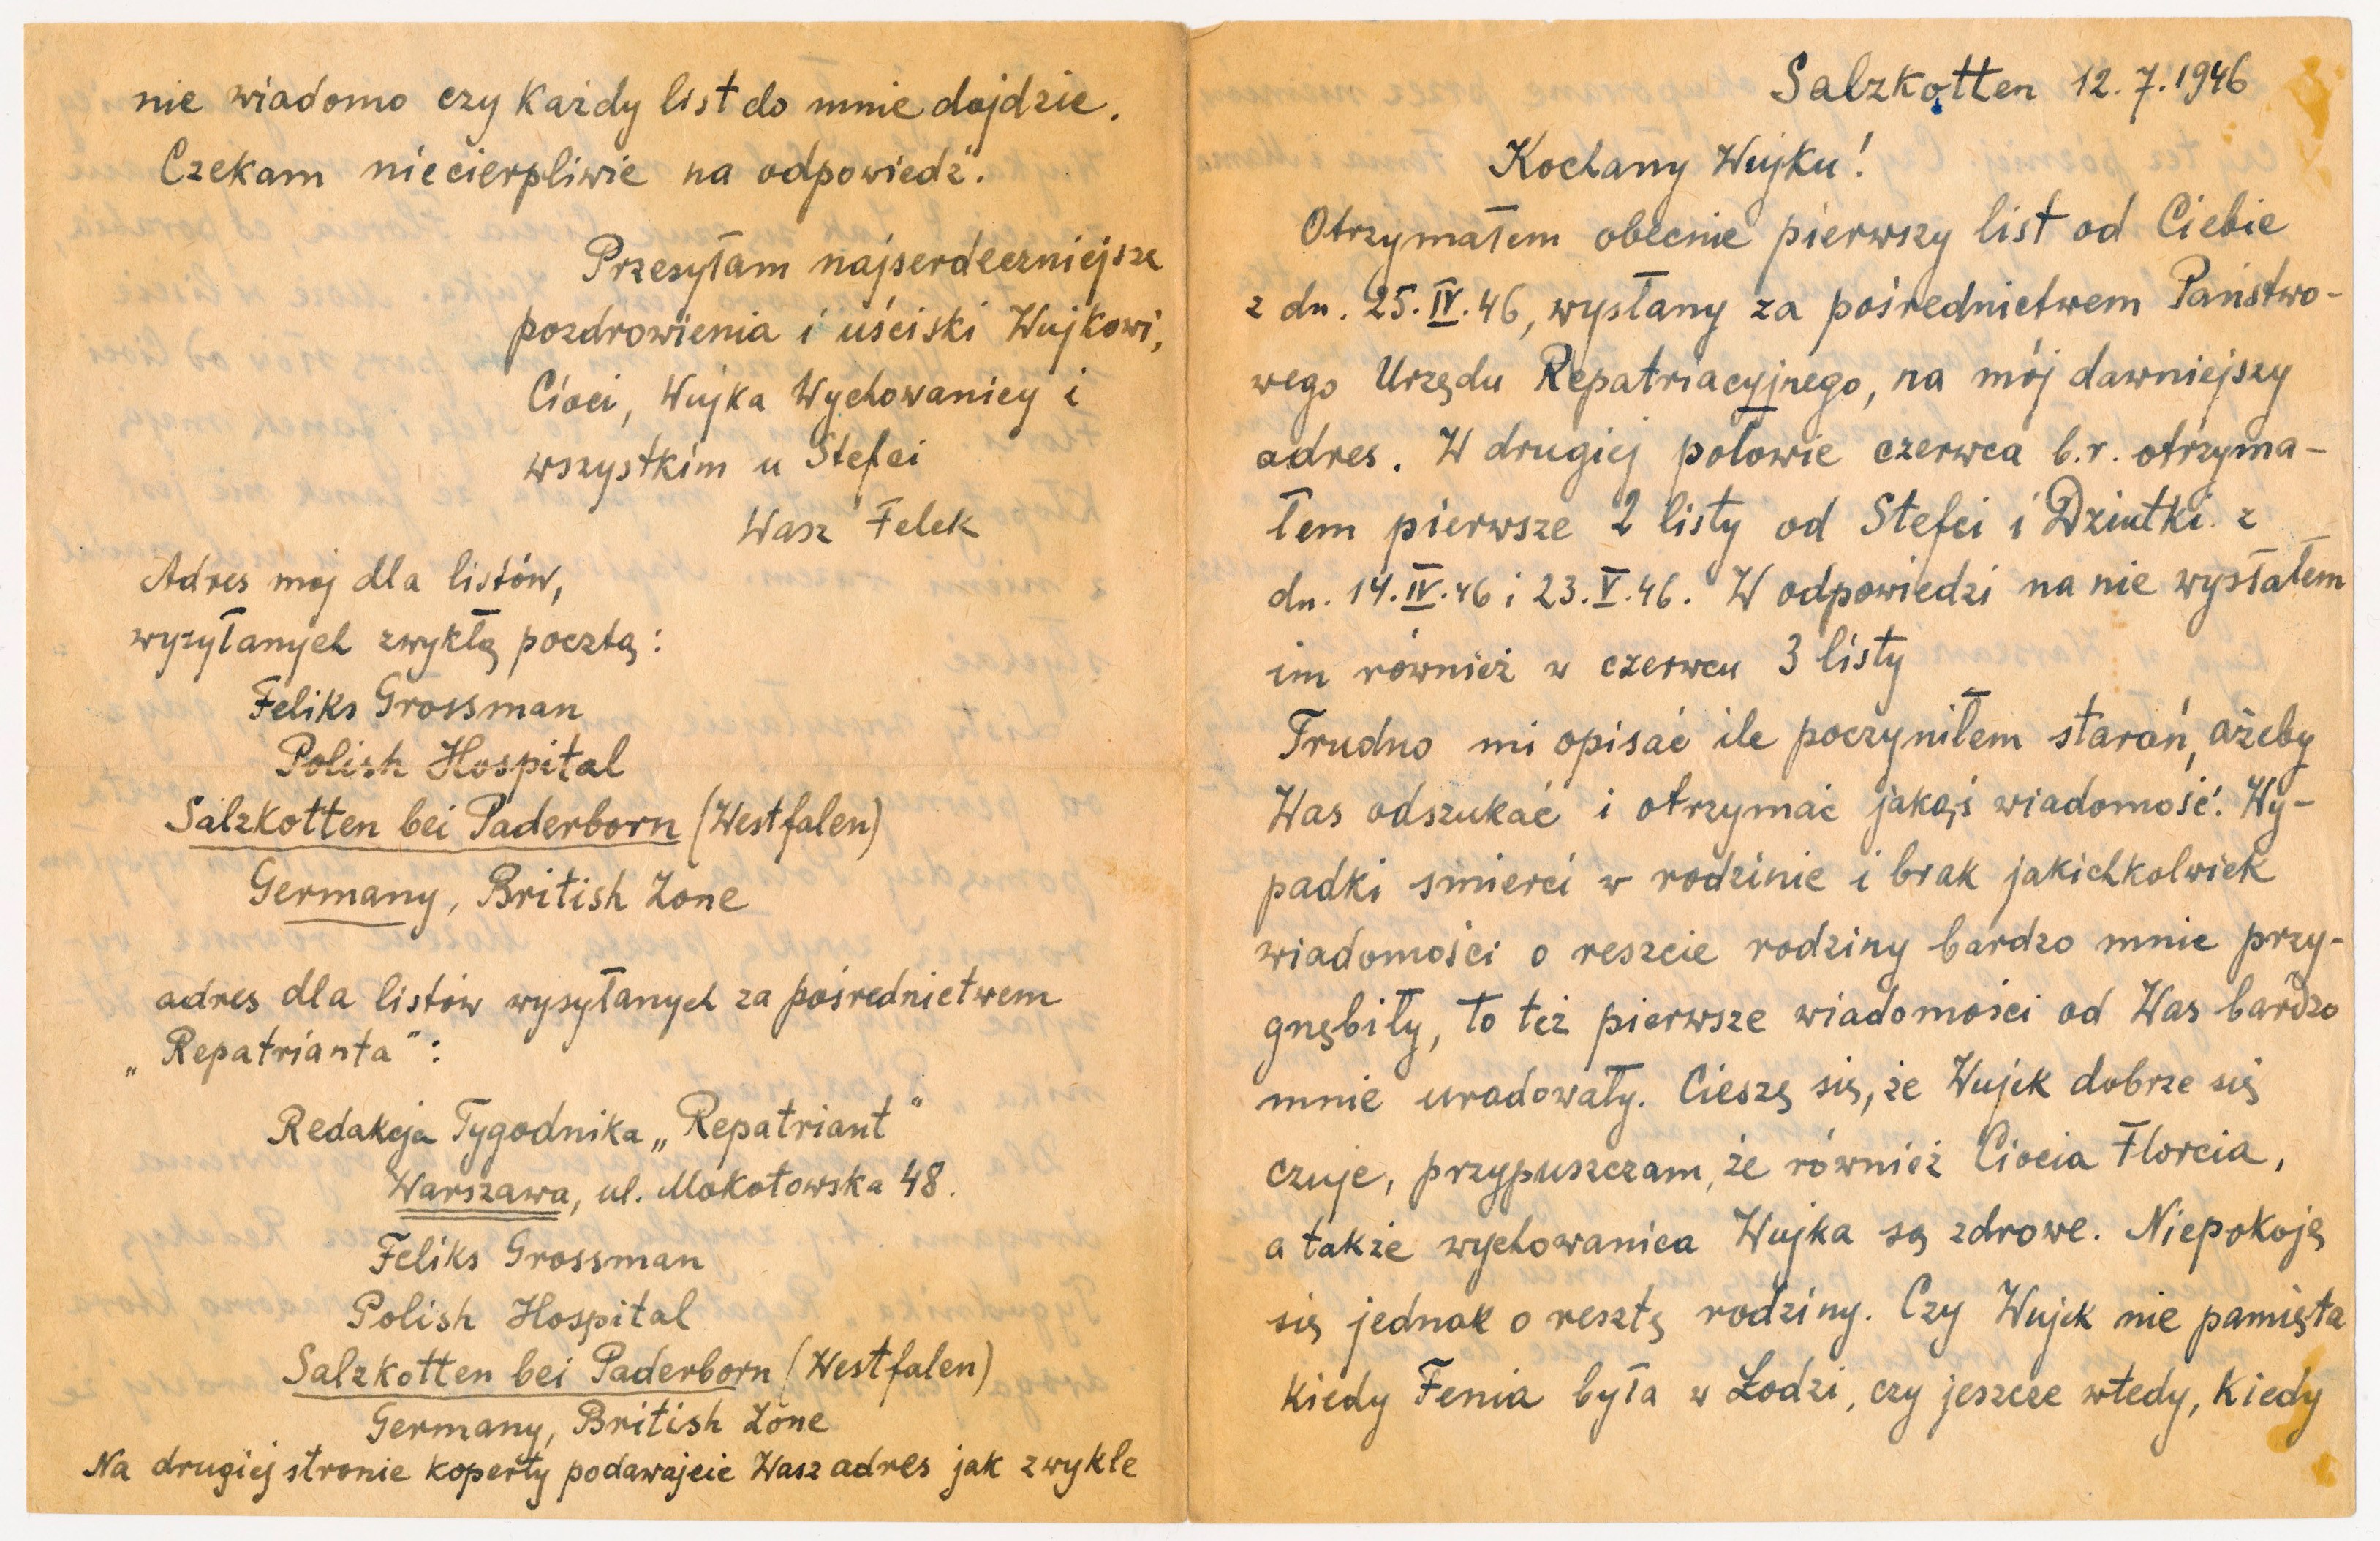 Salzkotten 12.7.1946
Kochany Wujku!
Otrzymałem obecnie pierwszy list od Ciebie
z dn. 25.IV.46, wysłany za pośrednictwem Państwo-
wego Urzędu Repatriacyjnego, na mój dawniejszy
adres. W drugiej połowie czerwca b.r. otrzyma-
łem pierwsze 2 listy od Stefci i Dziutki z
dn. 14.IV.46 i 23.V.46. W odpowiedzi na nie wysłałem
im również w czerwcu 3 listy
Trudno mi opisać ile poczyniłem starań, ażeby
Was odszukać i otrzymać jakąś wiadomość. Wy-
padki śmierci w rodzinie i brak jakichkolwiek
wiadomości o reszcie rodziny bardzo mnie przy-
gnębiły, to też pierwsze wiadomości od Was bardzo
mnie uradowały. Cieszę się, że Wujek dobrze się
czuje, przypuszczam, że również Ciocia Florcia,
a także wychowanica Wujka są zdrowe. Niepokoję
się jednak o resztę rodziny. Czy Wujek nie pamięta
kiedy Fenia była w Łodzi, czy jeszcze wtedy, kiedy
nie wiadomo czy każdy list do mnie dojdzie.
Czekam niecierpliwie na odpowiedź.
Przesyłam najserdeczniejsze
pozdrowienia i uściski Wujkowi,
Cioci, Wujka Wychowanicy i
wszystkim u Stefci
Wasz Felek
Adres mój dla listów,
wysyłanych zwykłą pocztą:
Feliks Grossman
Polish Hospital
Salzkotten bei Paderborn (Westfalen)
Germany, British Zone
adres dla listów wysyłanych za pośrednictwem
„Repatrianta":
Redakcja Tygodnika „Repatriant"
Warszawa, ul. Mokotowska 48.
Feliks Grossman
Polish Hospital
Salzkotten bei Paderborn (Westfalen)
Germany, British Zone
Na drugiej stronie koperty podawajcie Wasz adres jak zwykle